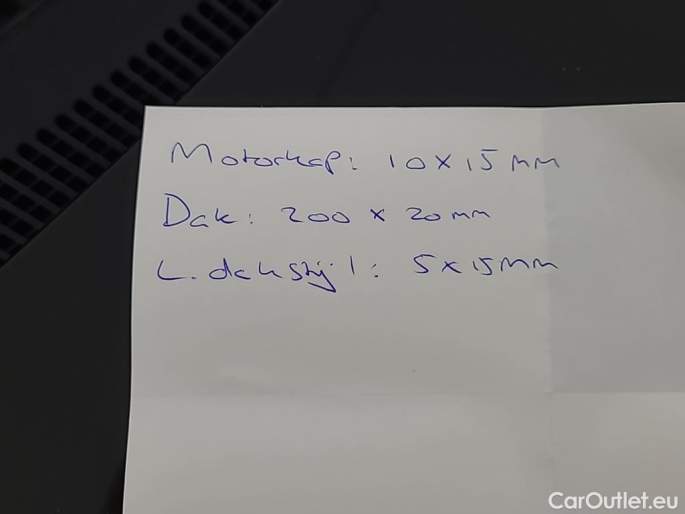 Motorkap: 10 x 15 mm
Dak: 200 x 20 mm
L. dakstijl: 5 x 15 mm
CarOutlet.eu